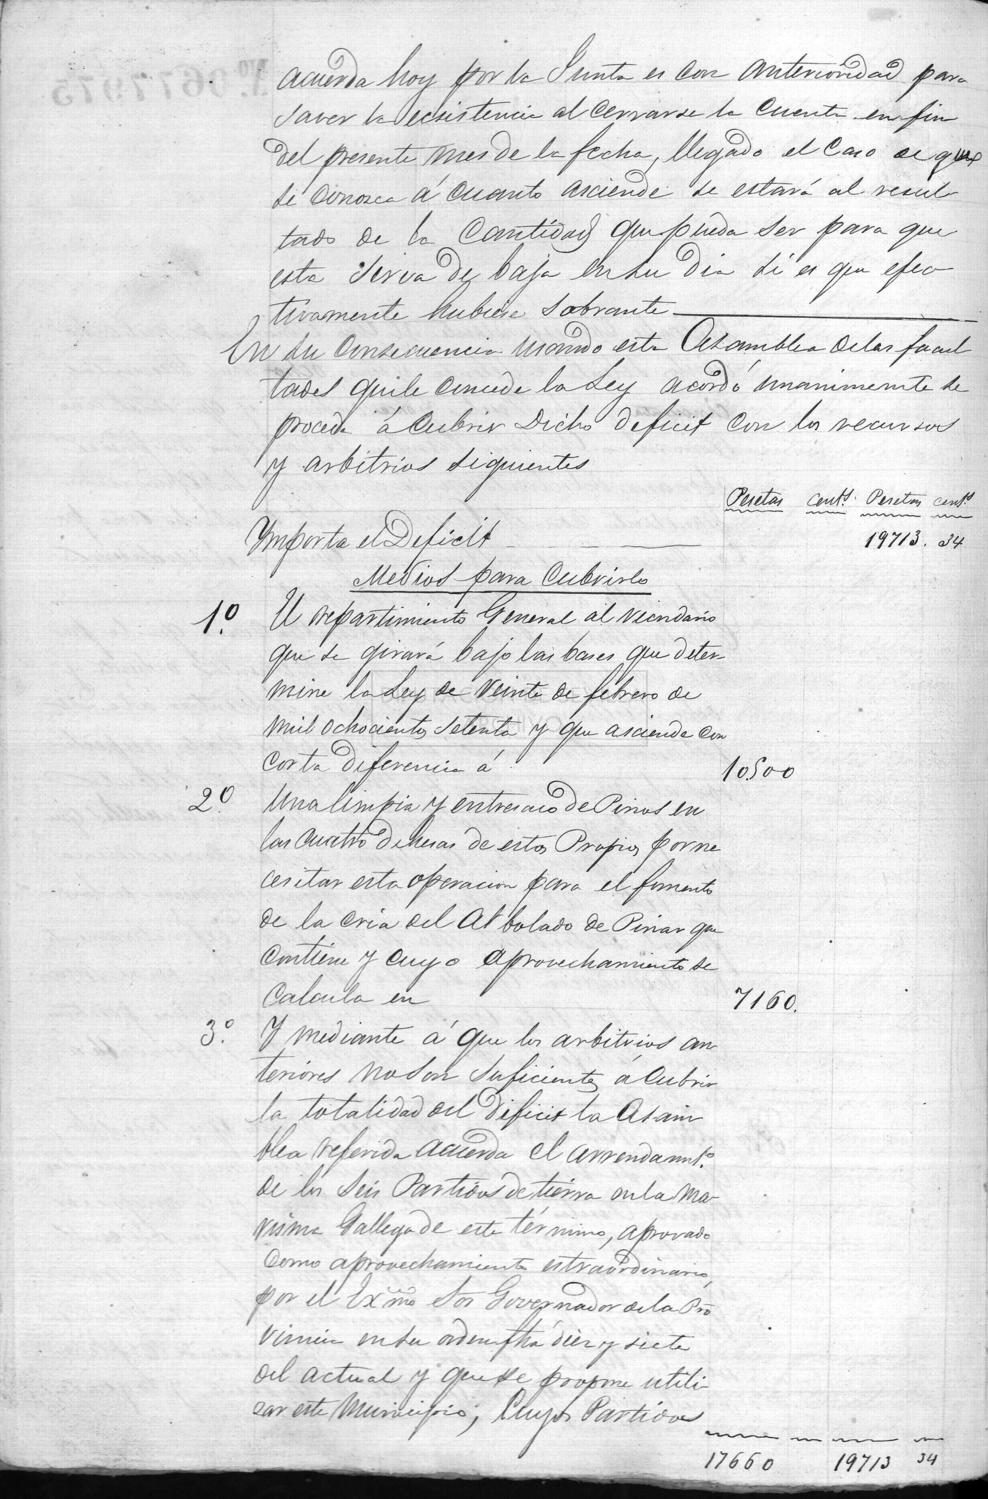 acuerda hoy por la Junta es con anterioridad para
saver la ecsistencia al cerrarse la cuenta en fin
del presente mes de la fecha, llegado el caso de que
se conosca á cuanto asciende se estará al resul-
tado de la cantidad que pueda ser para que
esta sirva de baja en su dia si es que efec-
tivamente hubiese sobrante
En su consecuencia usando esta Asamblea de las facul
tades que le concede la Ley acordó unanimemente se
proceda á cubrir dicho deficit con los recursos
y arbitrios siguientes
Pesetas cents. Pesetas cents
Ymporta el Deficit 19713. 34
Medios para Cubrirlo
1º. U repartimiento General al vecindario
que se girará bajo las bases que deter-
mine la Ley de veinte de febrero de
mil ochocientos setenta y que asciende con
corta diferencia á 10500
2º. Una limpia y entresaco de Pinos en
las cuatro dehesas de estos Propios por ne
cesitar esta operacion para el fomento
de la cria del Arbolado de Pinar que
contiene y cuyo aprovechamiento se
calcula en 7160.
3º. Y mediante á que los arbitrios an
teriores no son suficientes á cubrir
la totalidad del deficit la Asam
blea referida acuerda el arrendamto.
de los seis Partidos de tierra en la Ma-
risma Gallega de este término, aprovado
como aprovechamiento estraordinario,
por el Exmo Sor Governador de la Pro
vincia en su orden fhá diez y siete
del actual y que se propone utili-
zar este Municipio; Cuyos Partidos
17660 19713 34
Nº. 0677975